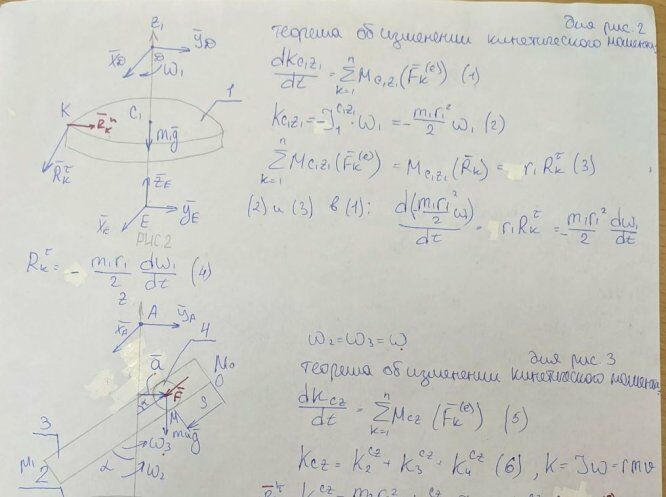 для рис. 2
теорема об изменении кинетического момента
dKc₁z₁/dt = Σₖ₌₁ⁿ Mc₁z₁(F̄ₖ⁽ᵉ⁾) (1)
Kc₁z₁ = -J₁^C₁z₁ · ω₁ = - m₁r₁²/2 ω₁ (2)
Σₖ₌₁ⁿ Mc₁z₁(F̄ₖ⁽ᵉ⁾) = Mc₁z₁(R̄ₖ) = r₁Rₖ^τ (3)
(2) и (3) в (1): d(m₁r₁²/2 ω)/dt r₁Rₖ^τ = - m₁r₁²/2 dω₁/dt
z₁
x̄_D
D
ȳ_D
ω₁
1
K
R̄ₖⁿ
C₁
m₁ḡ
R̄ₖ^τ
z̄_E
x̄_E
E
ȳ_E
РИС 2
Rₖ^τ = - m₁r₁/2 dω₁/dt (4)
z
A
x̄_A
ȳ_A
4
ā
M₀
O
F̄
M
S
mḡ
3
ω₃
α
M₁
2
ω₂
ω₂ = ω₃ = ω
для рис 3
теорема об изменении кинетического момента
dKcz/dt = Σₖ₌₁ⁿ Mcz (F̄ₖ⁽ᵉ⁾) (5)
Kcz = K₂^cz + K₃^cz + K₄^cz (6), K = Jω = rmv